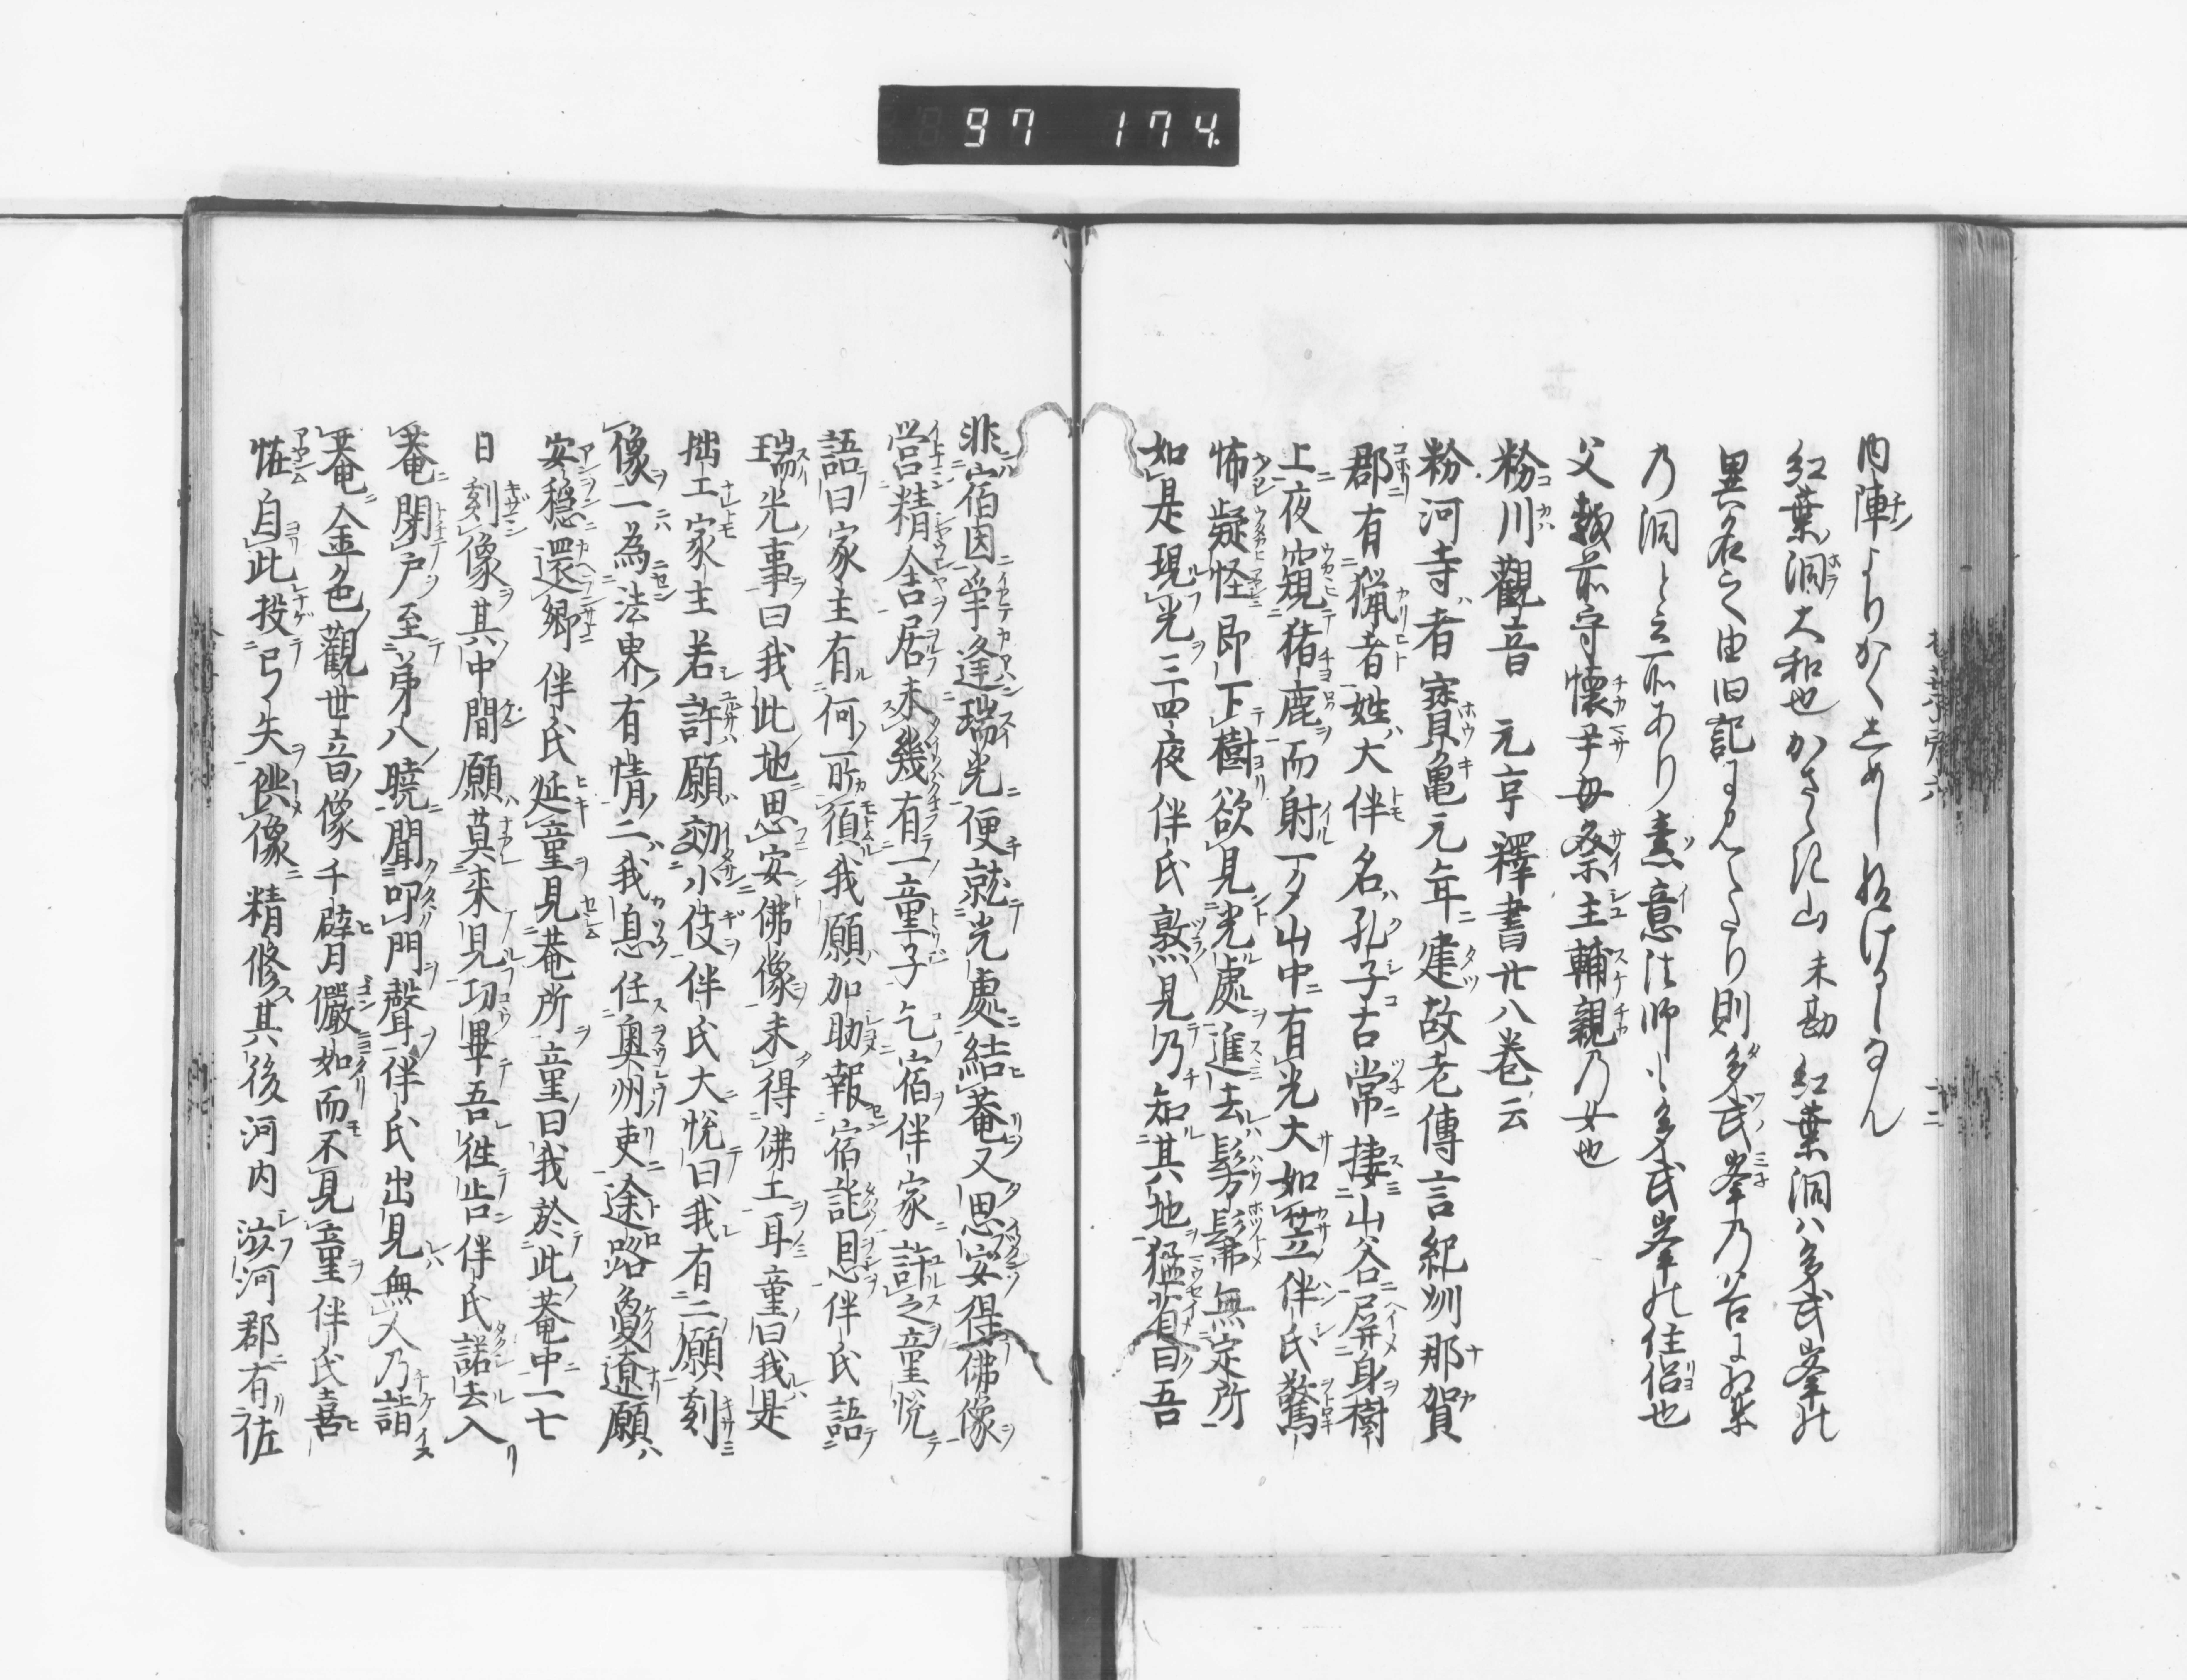 97 174.
内陣よりかくしめし給けるしなん
紅葉洞大和也かさゝ記山未勘紅葉洞ハ多武峯の
異名之由旧記に見へたり則多武峯乃谷に紅葉
乃洞と云所あり素意法師も多武峯の住侶也
父越前守懐尹母祭主輔親乃女也
粉川觀音 元亨釋書廿八巻云
粉河寺者寳亀元年建故老傳言紀州那賀
郡有猟者姓大伴名孔子古常捿山谷屏身樹
上夜窺猪鹿而射一夕山中有光大如笠伴氏驚
怖疑怪即下樹欲見光處進去髣髴無定所
如是現光三四夜伴氏熟見乃知其地猛省曰吾
非宿因爭逢瑞光便就光處結菴又思安得佛像
営精舎居未幾有一童子乞宿伴家許之童悦
語曰家主有何所須我願加助報宿託恩伴氏語
瑞光事曰我此地思安佛像未得佛工耳童曰我是
拙工家主若許願効小伎伴氏大悦曰我有二願刻
像一為法界有情二我息任奥州吏途路敻遼願
安穏還郷伴氏延童見菴所童曰我於此菴中一七
日刻像其中間願莫来見功畢吾往告伴氏諾去入
菴閇戸至弟八曉聞叩門聲伴氏出見無人乃詣
菴金色觀世音像千臂月儼如而不見童伴氏喜
恠自此投弓矢供像精修其後河内澁河郡有佐